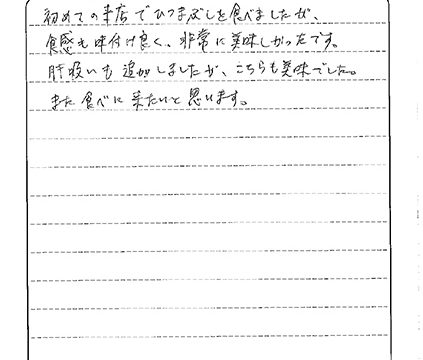 初めての来店でひつまぶしを食べましたが、
食感も味付け良く、非常に美味しかったです。
肝吸いも追加しましたが、こちらも美味でした。
また食べに来たいと思います。